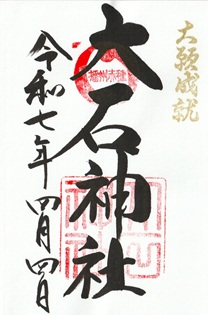 大願成就
大石神社
令和七年四月四日